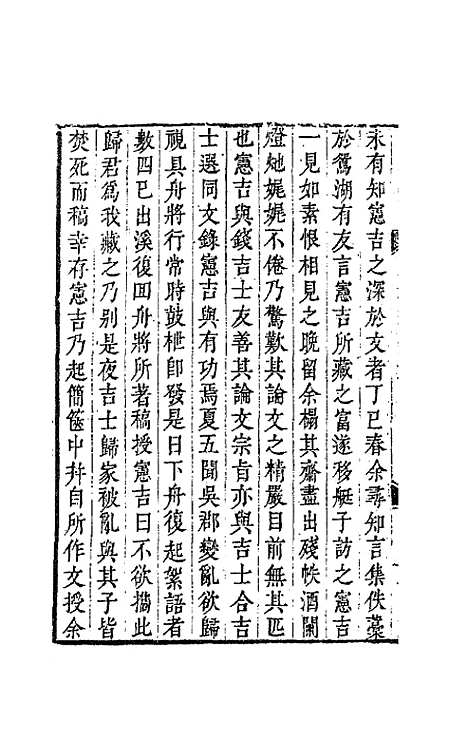 未有知憲吉之深於文者丁巳春余尋知言集佚藁
於鴛湖有友言憲吉所藏之富遂移艇子訪之憲吉
一見如素恨相見之晚留余榻其齋盡出殘帙酒闌
燈灺娓娓不倦乃驚歎其論文之精嚴目前無其匹
也憲吉與錢吉士友善其論文宗旨亦與吉士合吉
士選同文錄憲吉與有功焉夏五聞吳郡變亂欲歸
視具舟將行常時鼓枻卽發是日下舟復起絮語者
數四已出溪復囬舟將所著稿授憲吉曰不欲攜此
歸君爲我藏之乃别是夜吉士歸家被亂與其子皆
焚死而稿幸存憲吉乃起簡篋中并自所作文授余